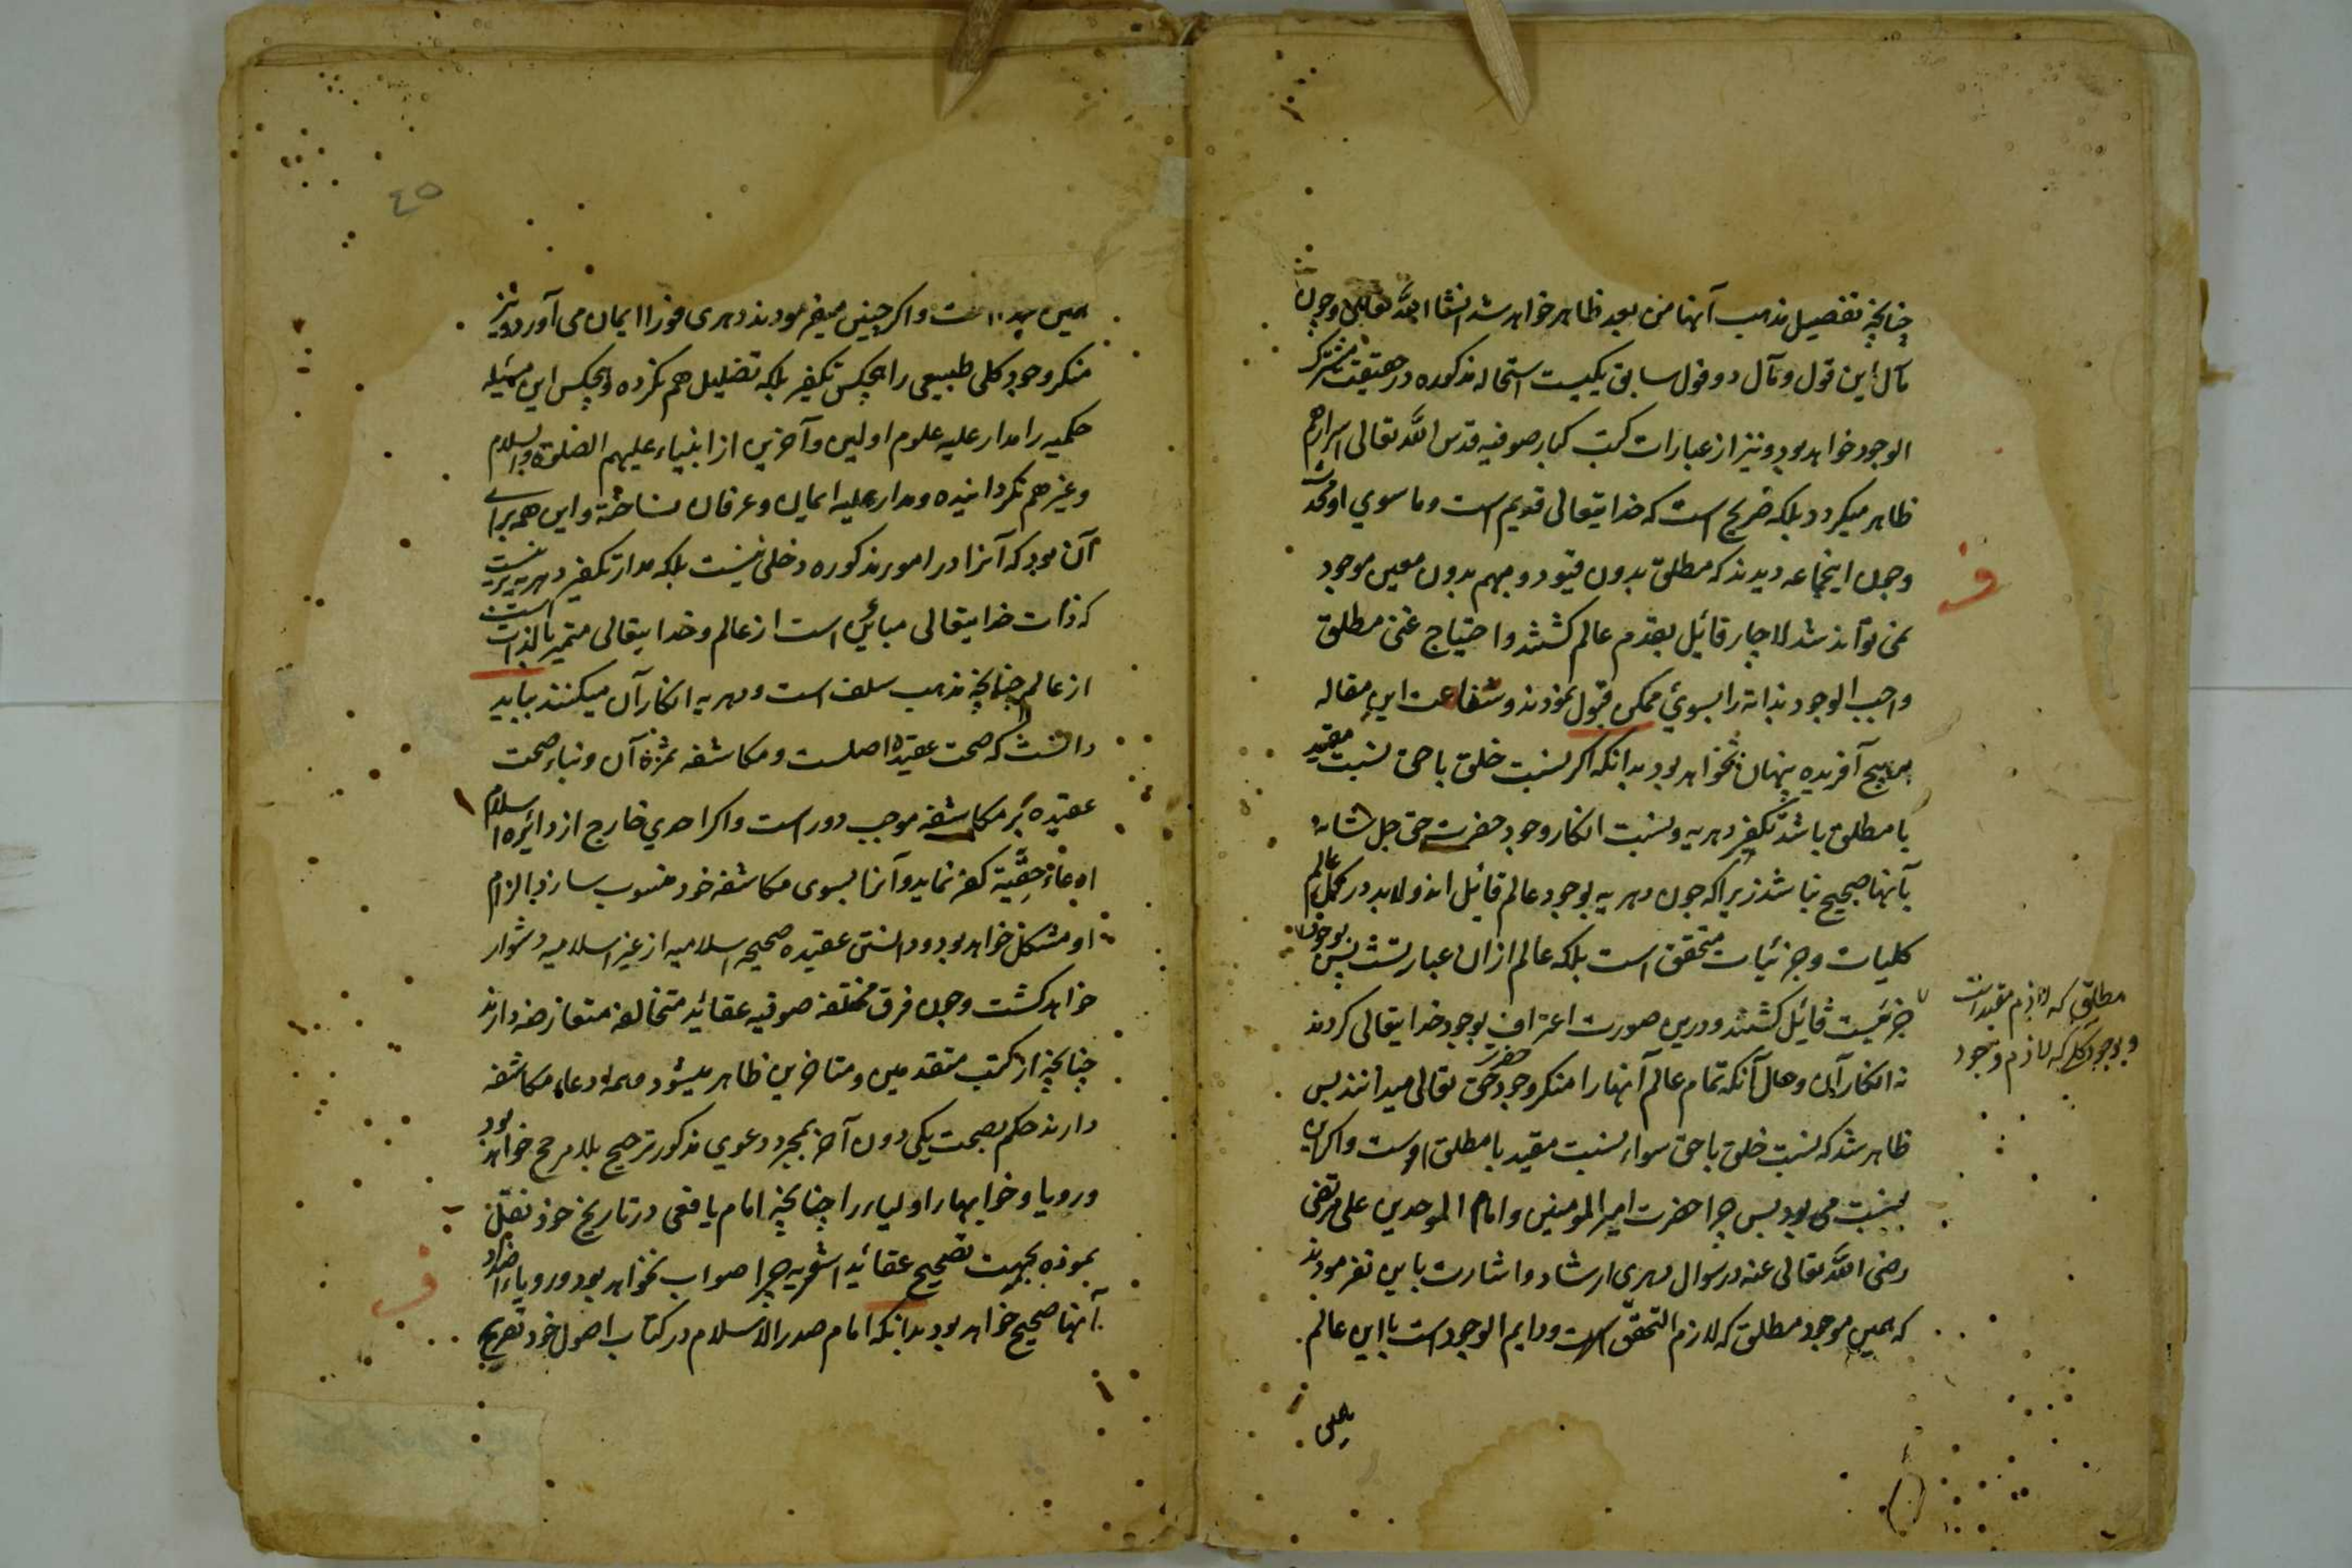 چنانچه تفصیل مذهب آنها من بعد ظاهر خواهد شد انشا الله تعالی و چون
مآل این قول و مآل دو قول سابق یکیست استحاله مذکوره در حقیقت مشترک
الوجود خواهد بود و نیز از عبارات کتب کبار صوفیه قدس الله تعالی اسرارهم
ظاهر میکردد بلکه صریح است که خدایتعالی قدیم است و ما سوی او محدث
و چون اینجماعه دیدند که مطلق بدون قیود و مبهم بدون معین موجود
نمی تواند شد لاچار قائل بقدم عالم کشتند و احتیاج غنی مطلق
واجب الوجود بذاته را بسوی ممکن قبول نمودند و شفاعت این مقاله
بر هیچ آفریده پنهان نخواهد بود بدانکه اکر نسبت خلق با حق نسبت مقید
با مطلق باشد تکفیر دهریه و نسبت انکار وجود حضرت حق جل شانه
بآنها صحیح نباشد زیرا که چون دهریه بوجود عالم قائل اند و لابد در کل عالم
کلیات و جزئیات متحقق است بلکه عالم ازان عبارتست پس بوجود
جزئیت قائل کشتند و درین صورت اعتراف بوجود خدایتعالی کردند
مطلق که لازم مقید است
و بوجود کلی که لازم وجود
نه انکار آن و حال آنکه تمام عالم آنها را منکر وجود حضرت حق تعالی میدانند پس
ظاهر شد که نسبت خلق با حق سواء نسبت مقید با مطلق اوست و اکر این
نسبت می بود پس چرا حضرت امیر المومنین و امام الموحدین علی مرتضی
رضی الله تعالی عنه در سوال دهری ارشاد و اشارت باین نفرمودند
که همین موجود مطلق که لازم التحقق است و دایم الوجود است با این عالم
٤٥
همین است و اکر چنین میفرمودند دهری فورا ایمان می آورد و نیز
منکر وجود کلی طبیعی را هیچکس تکفیر بلکه تضلیل هم نکرده و هیچکس این مسئله
حکمیه را مدار علیه علوم اولین و آخرین از انبیاء علیهم الصلوة و السلام
و غیرهم نکردانیده و مدار علیه ایمان و عرفان نساخته و این همه برای
آن بود که آنرا در امور مذکوره دخلی نیست بلکه مدار تکفیر دهریه برینست
که ذات خدایتعالی مبائن است از عالم و خدایتعالی متمیز بالذات است
از عالم چنانچه مذهب سلف است و دهریه انکار آن میکنند بباید
دانست که صحت عقیده اصلست و مکاشفه ثمرۀ آن و بناء صحت
عقیده بر مکاشفه موجب دور است و اکر احدی خارج از دائره اسلام
ادعاء حقیة کفر نماید و آنرا بسوی مکاشفه خود منسوب سازد الزام
او مشکل خواهد بود و دانستن عقیده صحیحه اسلامیه از غیر اسلامیه دشوار
خواهد کشت و چون فرق مختلفه صوفیه عقائد متخالفه متعارضه دارند
چنانچه از کتب متقدمین و متاخرین ظاهر میشود و همه ادعاء مکاشفه
دارند حکم بصحت یکی دون آخر بمجرد دعوی مذکور ترجیح بلا مرجح خواهد بود
و رویا و خوابهاء اولیاء را چنانچه امام یافعی در تاریخ خود نقل
نموده بجهت تصحیح عقائد اشعریه چرا صواب نخواهد بود و رویاء اضداد
آنها صحیح خواهد بود بدانکه امام صدر الاسلام در کتاب اصول خود تصریح